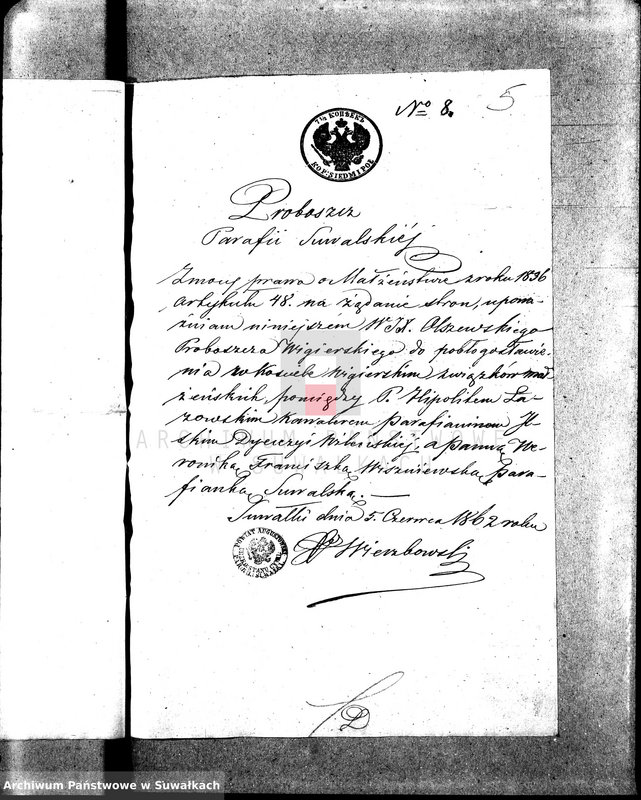 № 8.
5
7½ КОПѢЕКЪ
KOP: SIEDM I PÓŁ
Proboszcz
Parafii Suwalskiéj
Zmocy prawa o Małżeństwie zroku 1836
artykułu 48. na żądanie stron, upowa-
żniam niniejszém WJX. Olszewskiego
Proboszcza Wigierskiego do pobłogosławie-
nia w kosciele Wigierskim związków mał
żeńskich, pomiędzy P. Hipolitem Ła-
zowskim kawalerem parafianinem
skim Dyecezyi Wileńskiéj, a panną We-
roniką Franciszką Wiszniewską para-
fianką Suwalską. —
Suwałki dnia 5. Czerwca 1862 roku
Wierzbowski
D
ARCHIWUM PAŃSTWOWE
W SUWAŁKACH
Archiwum Państwowe w Suwałkach